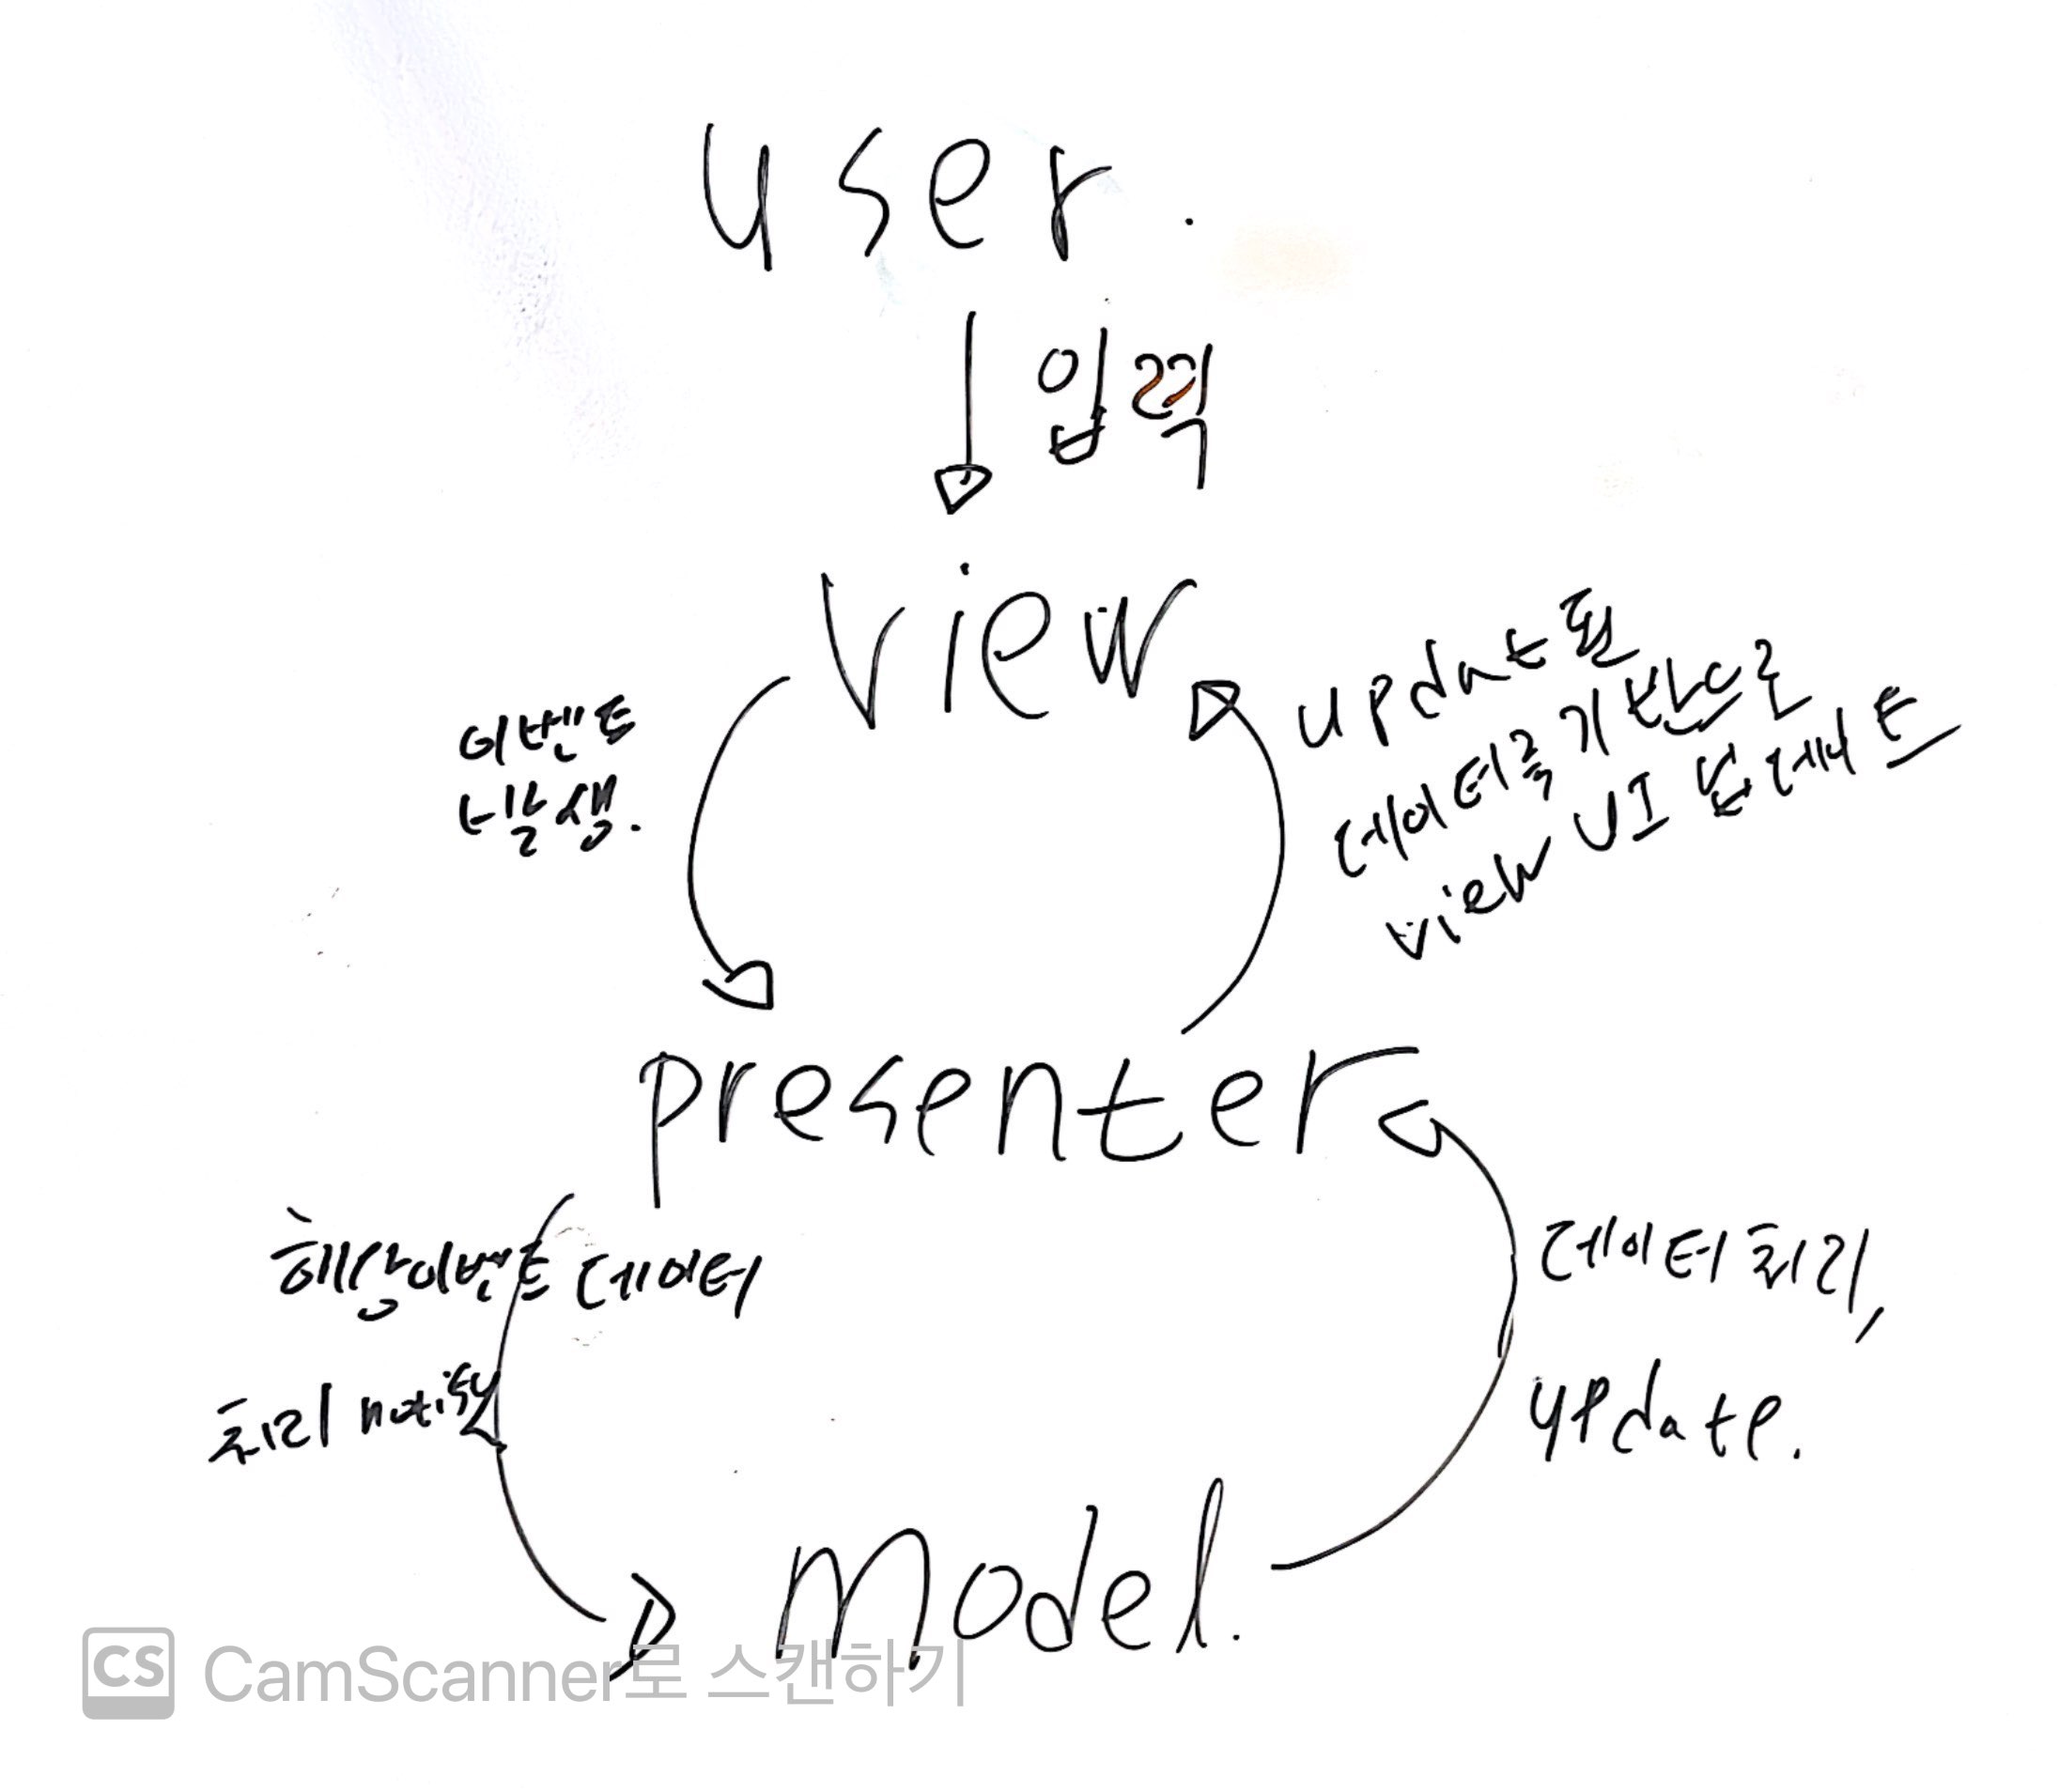 user.
입력
view
이벤트
발생.
update된
데이터를 기반으로
view UI 업데이트
presenter
해당이벤트 데이터
처리 notify
데이터 처리,
update.
Model.
CS CamScanner로 스캔하기